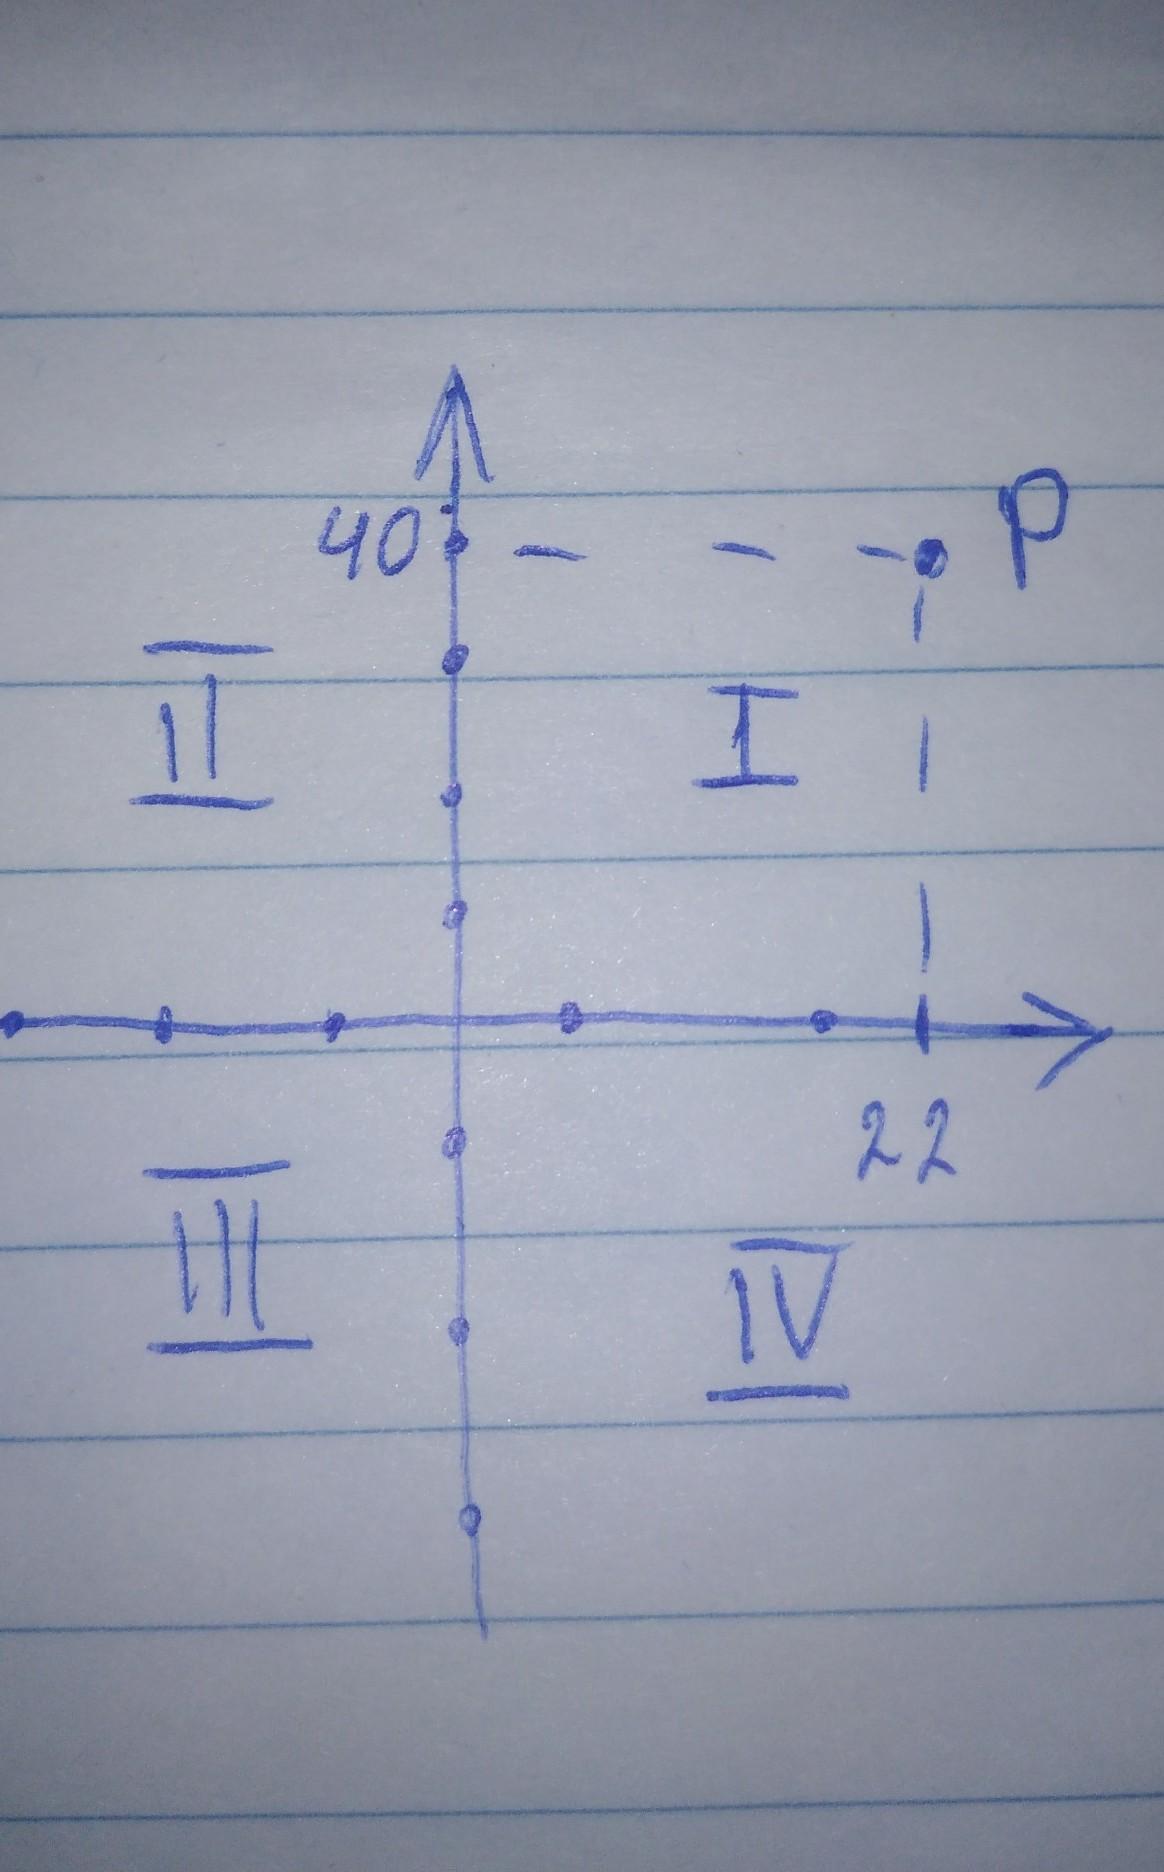 P
40
II
I
22
III
IV